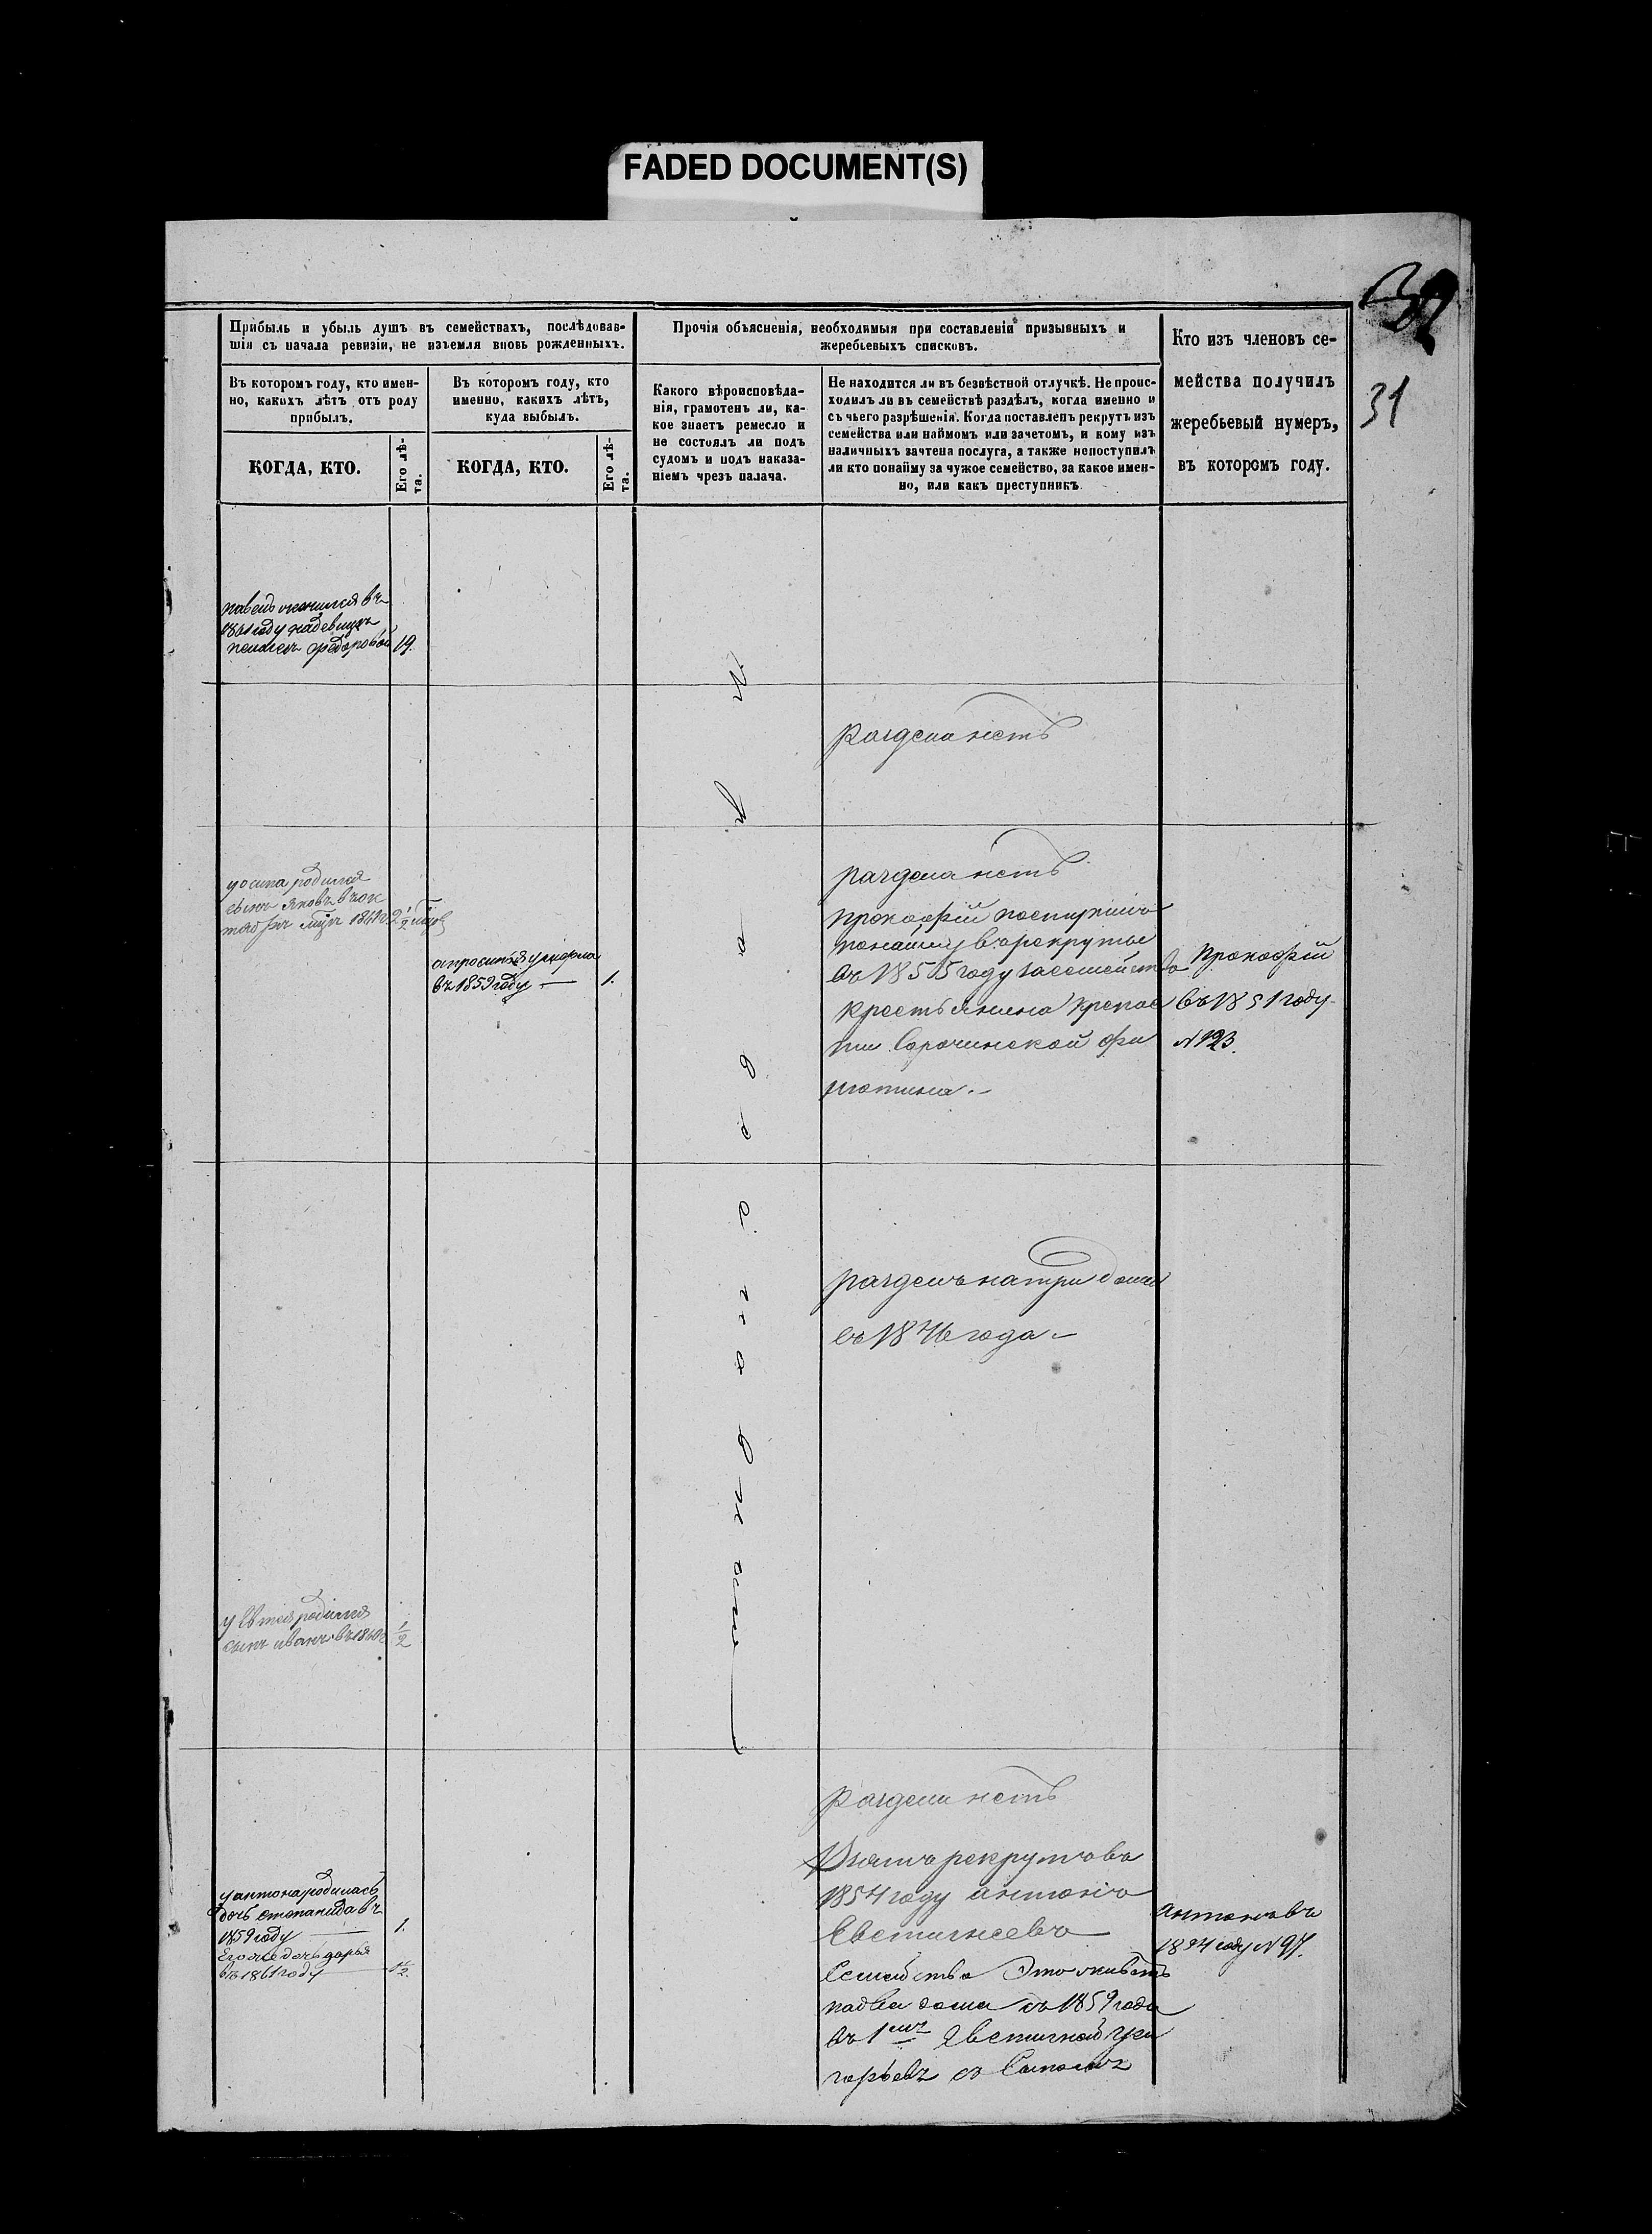 FADED DOCUMENT(S)
32
31
Прибыль и убыль душъ въ семействахъ, послѣдовав-
шія съ начала ревизіи, не изъемля вновь рожденныхъ.
Прочія объясненія, необходимыя при составленіи призывныхъ и
жеребьевыхъ списковъ.
Кто изъ членовъ се-
мейства получилъ
жеребьевый нумеръ,
въ которомъ году.
Въ которомъ году, кто имен-
но, какихъ лѣтъ отъ роду
прибылъ.
Въ которомъ году, кто
именно, какихъ лѣтъ,
куда выбылъ.
Какого вѣроисповѣда-
нія, грамотенъ ли, ка-
кое знаетъ ремесло и
не состоялъ ли подъ
судомъ и подъ наказа-
ніемъ чрезъ палача.
Не находится ли въ безвѣстной отлучкѣ. Не проис-
ходилъ ли въ семействѣ раздѣлъ, когда именно и
съ чьего разрѣшенія. Когда поставленъ рекрутъ изъ
семейства или наймомъ или зачетомъ, и кому изъ
наличныхъ зачтена послуга, а также непоступилъ
ли кто понайму за чужое семейство, за какое имен-
но, или какъ преступникъ
КОГДА, КТО.
Его лѣ-
та.
КОГДА, КТО.
Его лѣ-
та.
павелъ женился въ
1861 году надевице
федоровой 19.
раздела нетъ
у осипа родился
сынъ яковъ въ ок
тябре 1861 2 1/2
умерла
въ 1859 году — 1.
раздела нетъ
прокофій поступилъ
понайму в рекруты
въ 1855 году засемейство
крестьянина крепос
ти Сорочинской фи
липина.—
Прокофій
въ 1851 году
N 123.
православнаго
разделъ на три дома
съ 1846 года —
родился
сынъ иванъ въ 1860 1/2
раздела нетъ
Взятъ рекрутъ въ
1854 году антонъ
Евстигнеевъ
Семейство Это живетъ
на два дома съ 1859 года
въ 1мъ Евстигней гри
горьевъ съ
у антона родилась
дочь степанида въ
1859 году — 1.
Егоже дочь дарья
въ 1861 году — 1/2.
антонъ въ
1854 году N 97.